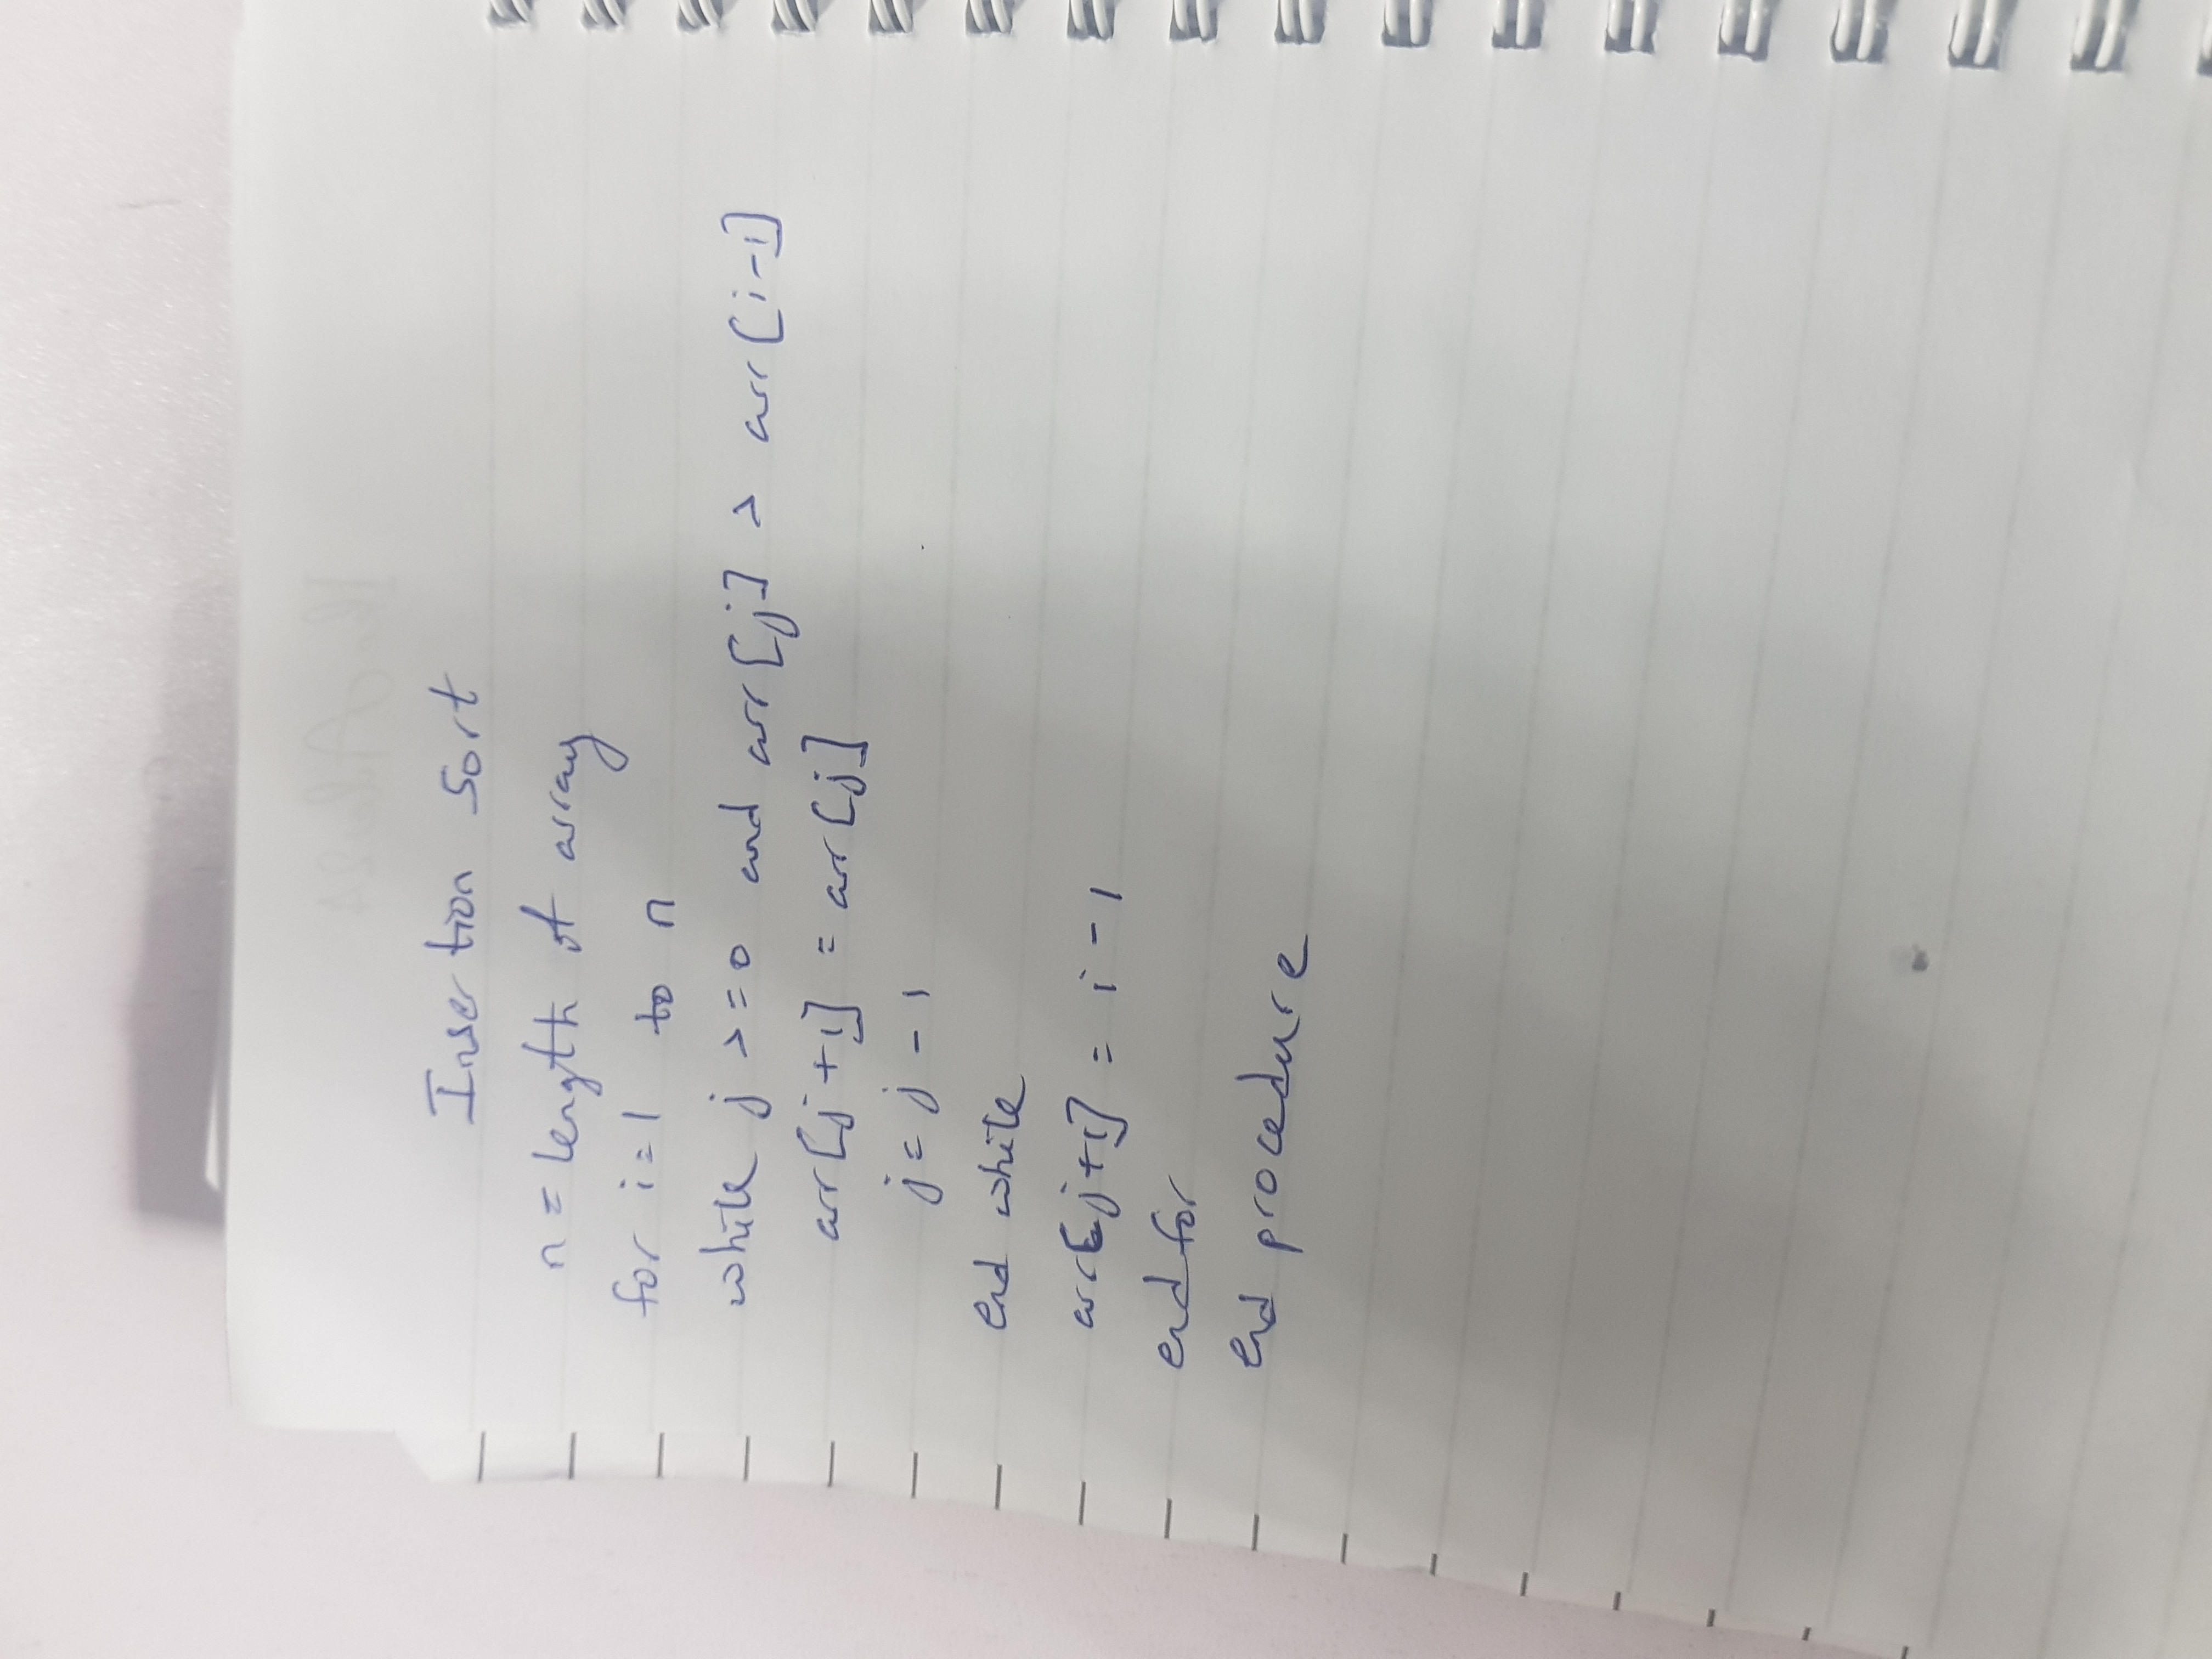 Insertion Sort
n = length of array
for i = 1 to n
while j >= 0 and arr[j] > arr[i-1]
arr[j+1] = arr[j]
j = j - 1
end while
arr[j+1] = i - 1
end for
end procedure